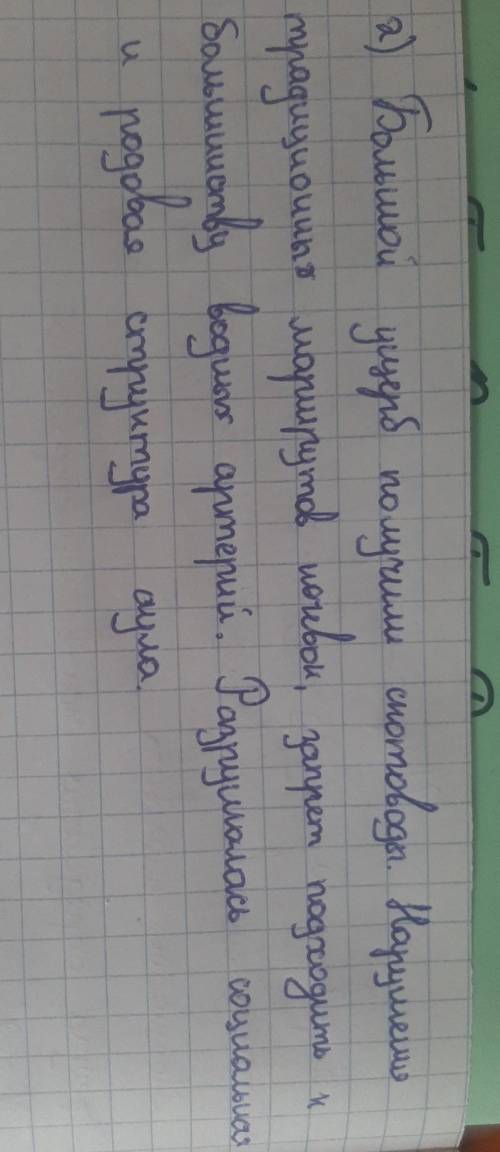 г) Большой ущерб получили скотоводы. Нарушение
традиционных маршрутов кочевок, запрет подходить к
большинству водных артерий. Разрушалась социальная
и родовая структура аула.